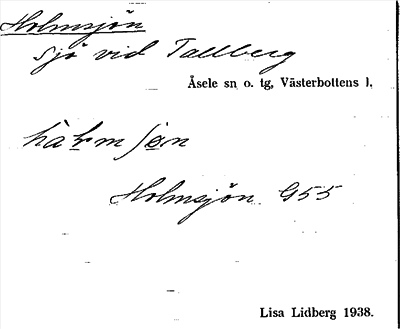 Holmsjön
sjö vid Tallberg
Åsele sn o. tg, Västerbottens l.
Holmsjön G55
Lisa Lidberg 1938.